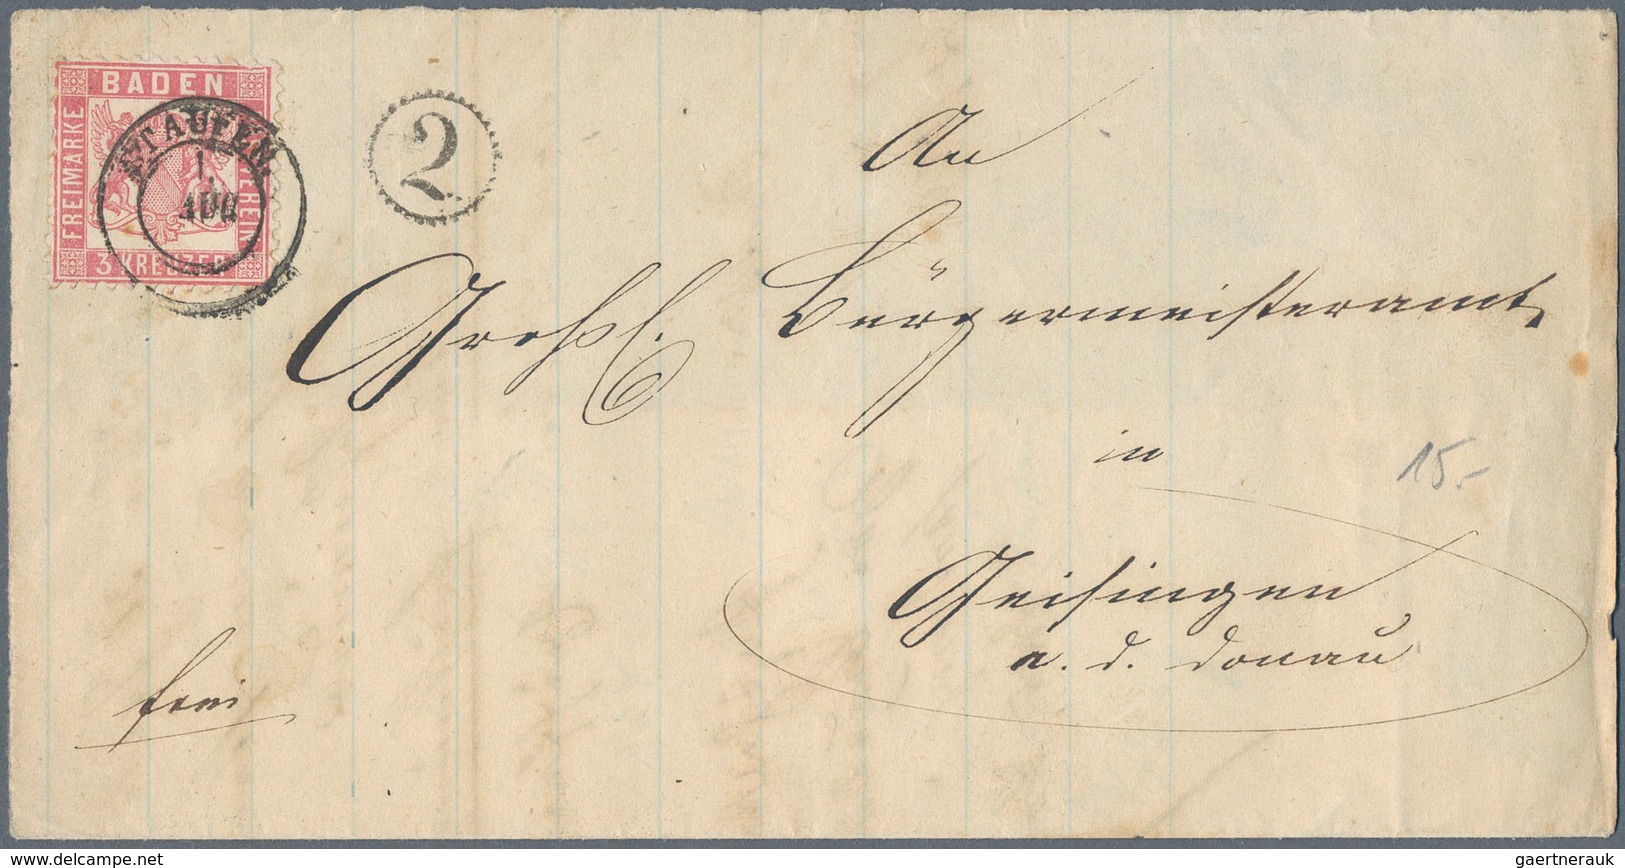 BADEN
FREIMARKE
3 KREUZER
STAUFEN
1.
AUG
2
An
Großh.
Bürgermeisteramt
in
15.-
Geisingen
a. d. Donau
frei
www.delcampe.net
gaertnerauk